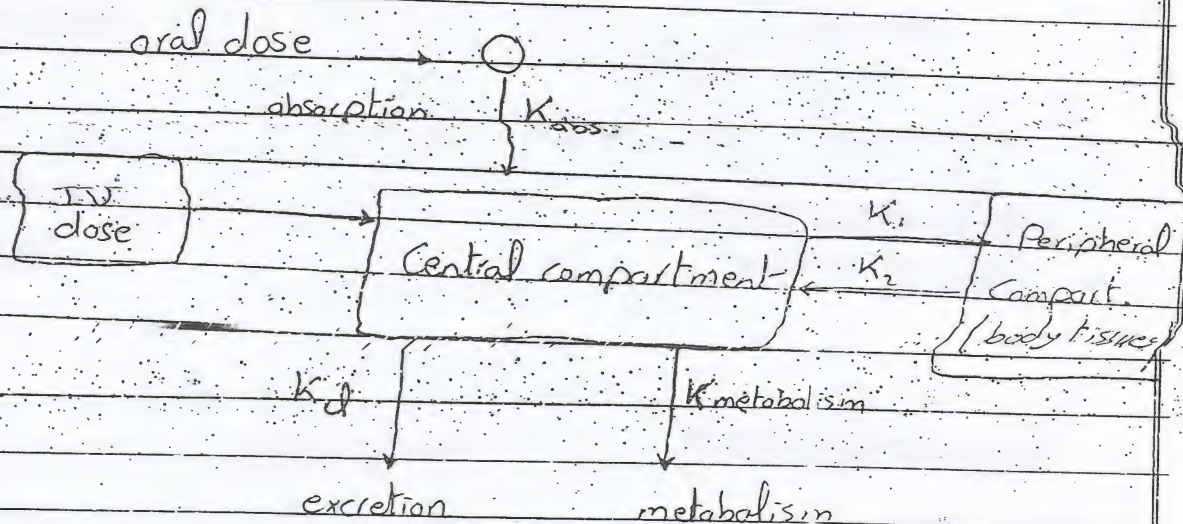 oral dose
absorption Kabs.
I.V. dose
Central compartment
K1
K2
Peripheral
Compart.
body tissues
Kel
K metabolism
excretion
metabolism